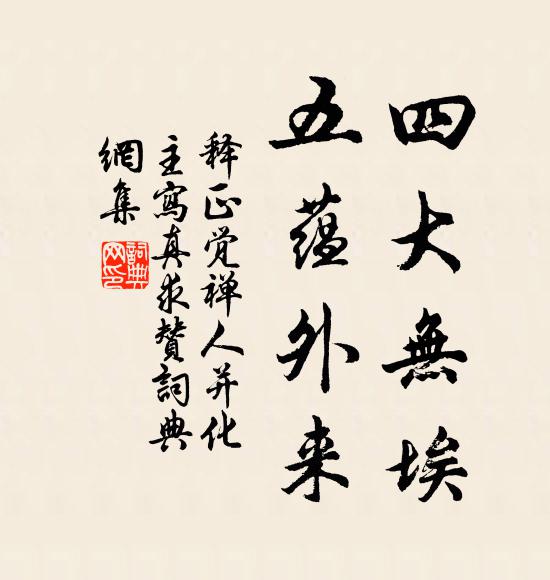 四大無埃
五蘊外来
释正觉禅人并化
主寫真求贊詞典
網集
詞典網印